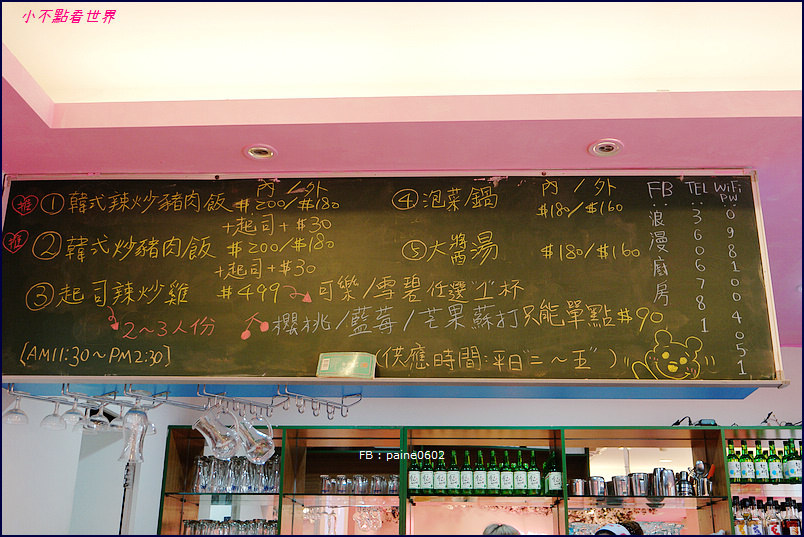 小不點看世界
內/外
推 ① 韓式辣炒豬肉飯 $200/$180
+起司+$30
推 ② 韓式炒豬肉飯 $200/$180
+起司+$30
③ 起司辣炒雞 $499 → 可樂/雪碧任選"1"杯
2~3人份
櫻桃/藍莓/芒果蘇打只能單點$90
[AM11:30~PM2:30]
(供應時間:平日"二~五")
內/外
④ 泡菜鍋 $180/$160
⑤ 大醬湯 $180/$160
FB:浪漫廚房
TEL:3606781
WiFi PW:0981004051
FB:paine0602